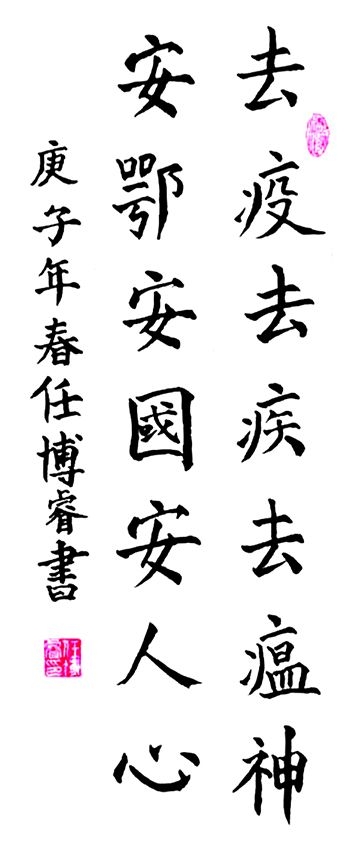 去疫去疾去瘟神
安鄂安國安人心
庚子年春任博睿書